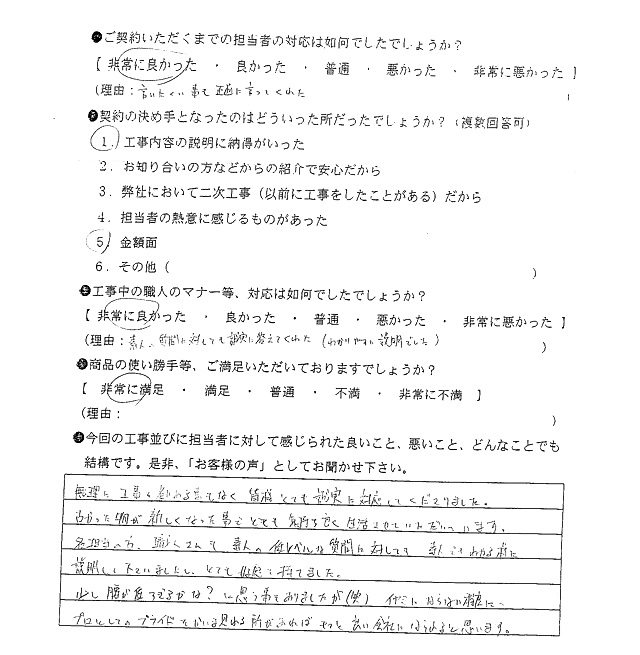 ●ご契約いただくまでの担当者の対応は如何でしたでしょうか?
【 非常に良かった ・ 良かった ・ 普通 ・ 悪かった ・ 非常に悪かった 】
(理由:言いたくい事も正直に言ってくれた )
●契約の決め手となったのはどういった所だったでしょうか?(複数回答可)
1.工事内容の説明に納得がいった
2.お知り合いの方などからの紹介で安心だから
3.弊社において二次工事(以前に工事をしたことがある)だから
4.担当者の熱意に感じるものがあった
5 金額面
6.その他( )
●工事中の職人のマナー等、対応は如何でしたでしょうか?
【 非常に良かった ・ 良かった ・ 普通 ・ 悪かった ・ 非常に悪かった 】
(理由:素人の質問に対しても誠実に答えてくれた(わかりやすい説明でした) )
●商品の使い勝手等、ご満足いただいておりますでしょうか?
【 非常に満足 ・ 満足 ・ 普通 ・ 不満 ・ 非常に不満 】
(理由: )
●今回の工事並びに担当者に対して感じられた良いこと、悪いこと、どんなことでも
結構です。是非、「お客様の声」としてお聞かせ下さい。
無理に工事を勧める事もなく皆様とても誠実に対応してくださりました。
古かった 新しくなった事でとても気持ち良く生活させていただいています。
各担当の方、職人さんも素人の低レベルな質問に対しても素人でもわかる様に
説明して下さいましたし、とても好感を持てました。
少し腰が低すぎるかな?と思う事もありましたが(笑)
プロとしてのプライド 所があればもっと良い会社に 思います。